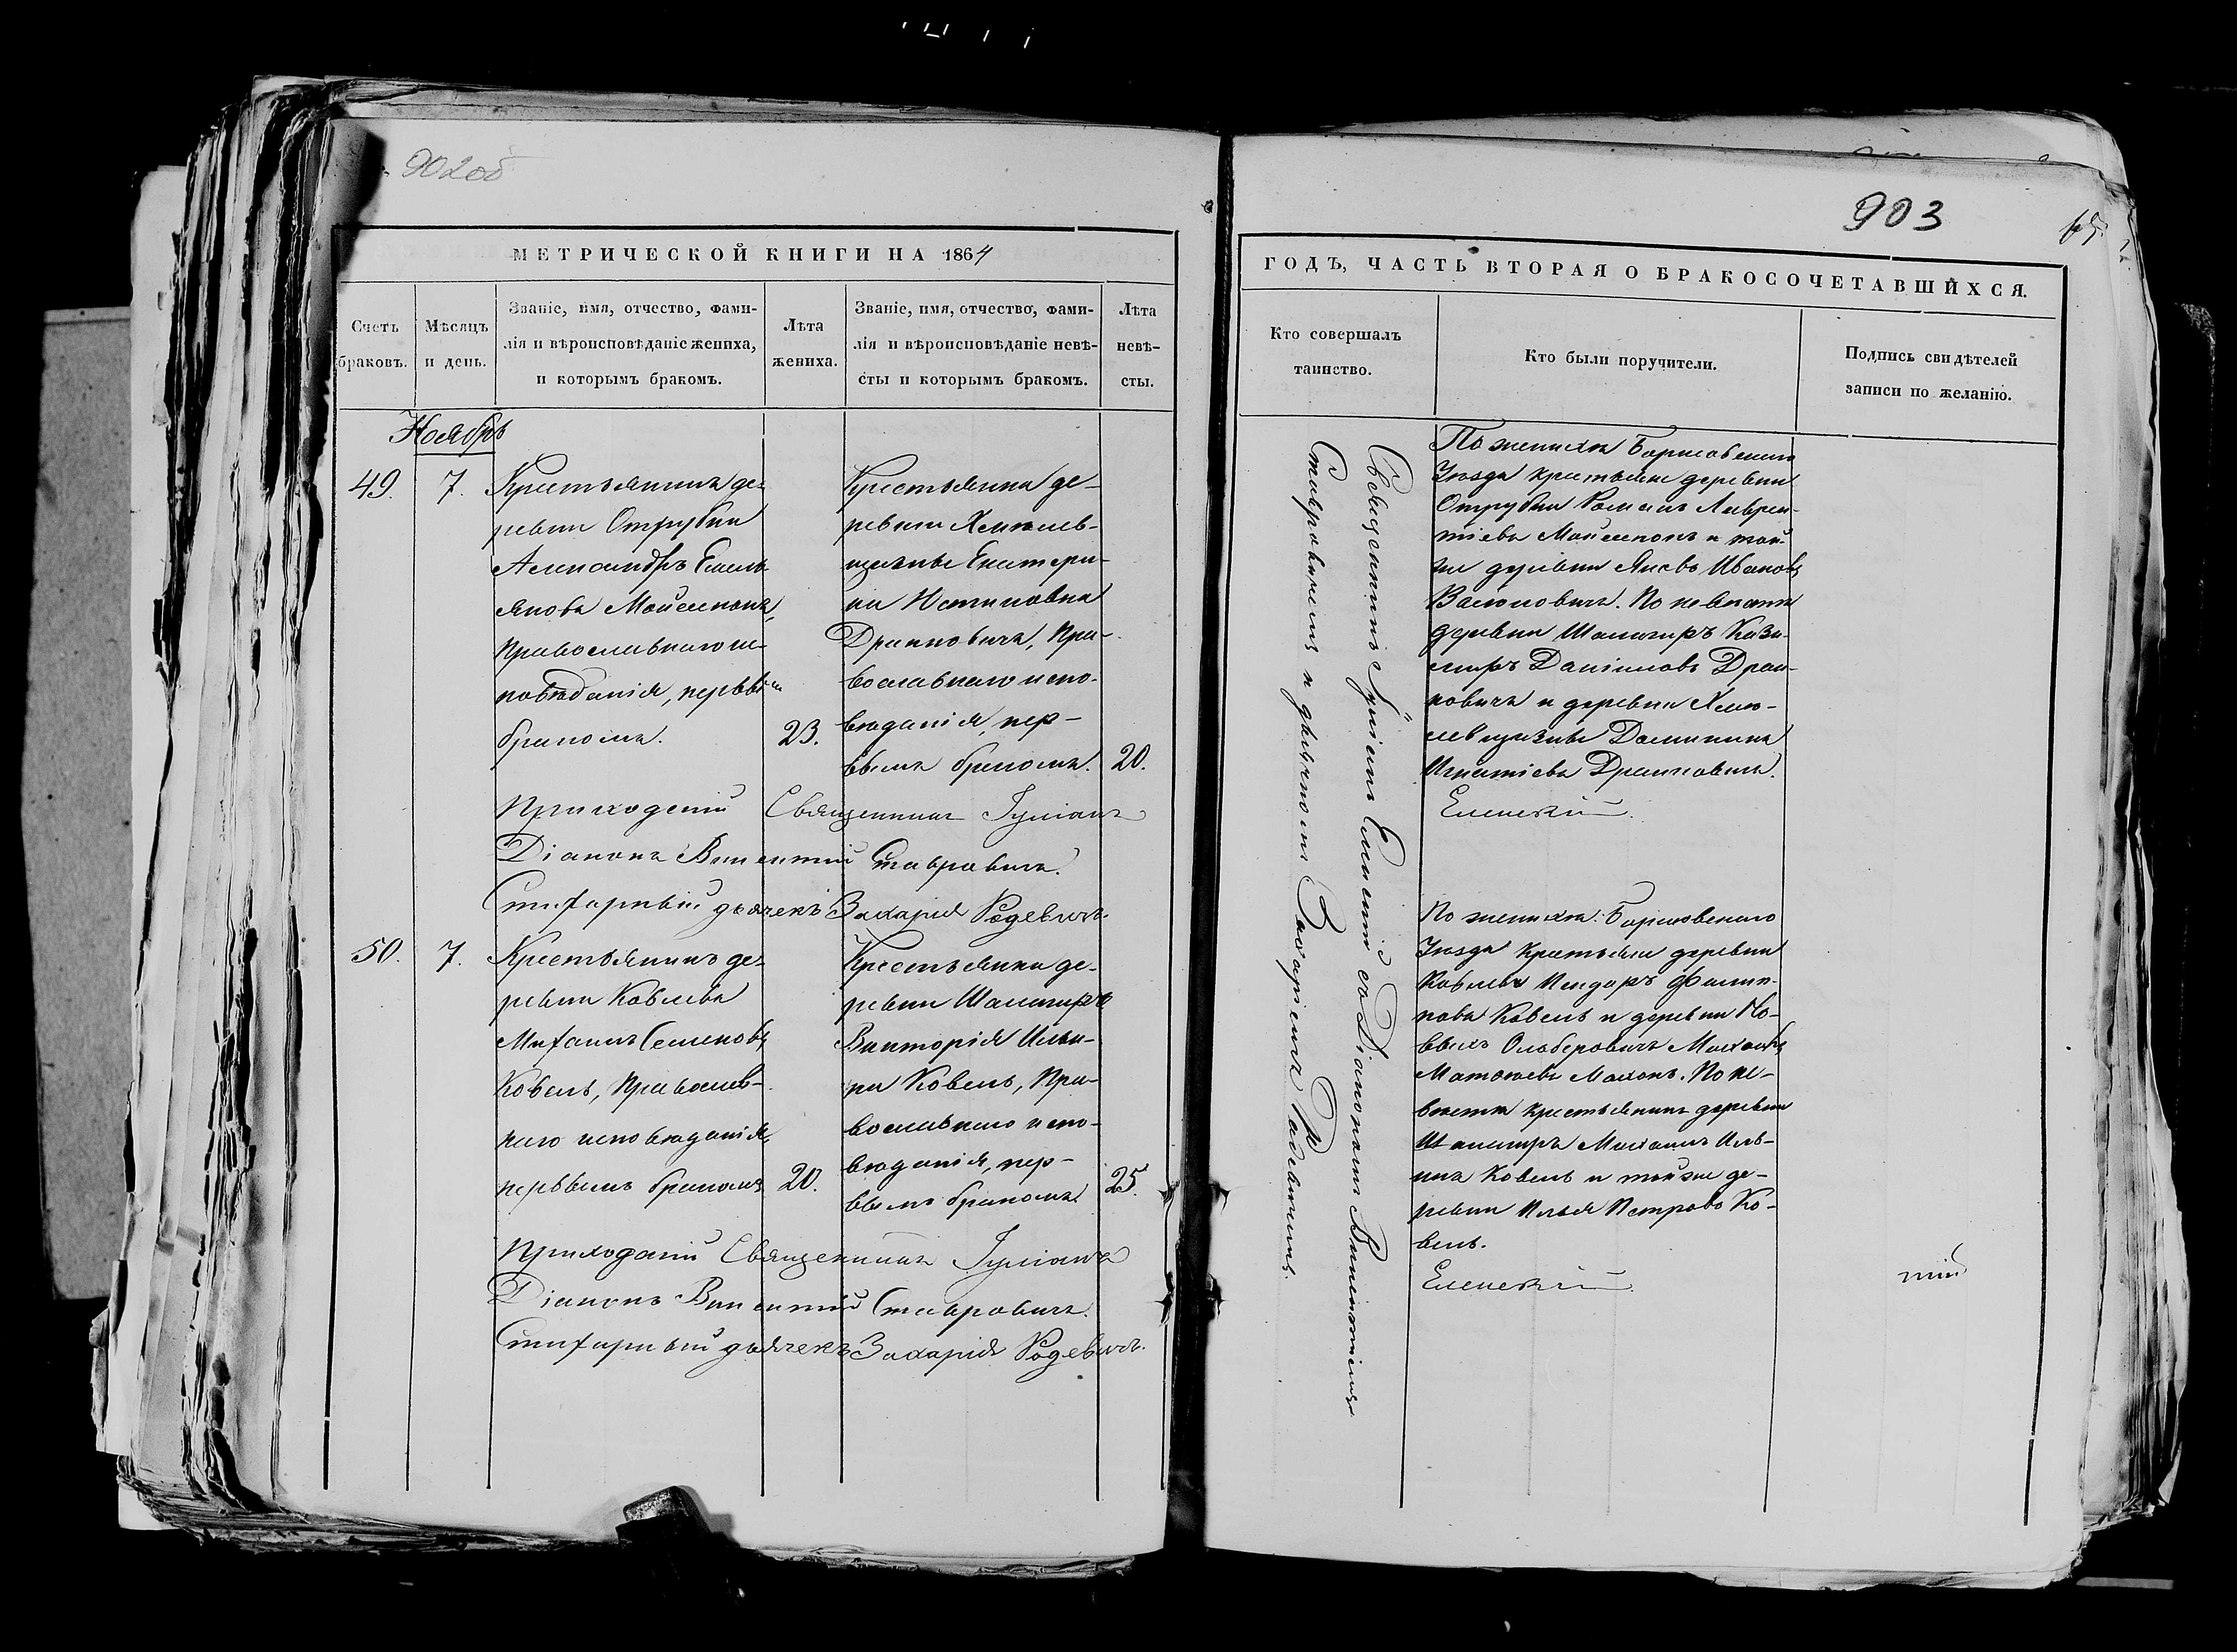 902об
МЕТРИЧЕСКОЙ КНИГИ НА 1864
Счетъ браковъ.
Мѣсяцъ и день.
Званіе, имя, отчество, фами-
лія и вѣроисповѣданіе жениха,
и которымъ бракомъ.
Лѣта жениха.
Званіе, имя, отчество, фами-
лія и вѣроисповѣданіе невѣ-
сты и которымъ бракомъ.
Лѣта невѣ-
сты.
Ноябрь
49.
7.
Крестьянинъ де-
ревни Отрубки
Александръ Емель-
яновъ Мойсеюнъ,
Православнаго ис-
повѣданія, первымъ
бракомъ.
23.
Крестьянка де-
ревни Хмѣлев-
щизны Екатери-
на Устиновна
Драниовичъ, Пра-
вославнаго испо-
вѣданія, пер-
вымъ бракомъ.
20.
Приходскій Священникъ Іуліанъ
Діаконъ Викентій Ставровичъ.
Стихарный дьячекъ Захарія Родевичъ.
50.
7.
Крестьянинъ де-
ревни Ковелева
Михаилъ Семеновъ
Ковель, Православ-
наго исповѣданія,
первымъ бракомъ
20.
Крестьянка де-
ревни Шалагиръ
Викторія Ильи-
на Ковель, Пра-
вославнаго испо-
вѣданія, пер-
вымъ бракомъ
25.
Приходскій Священникъ Іуліанъ
Діаконъ Викентій Ставровичъ.
Стихарный дьячекъ Захарія Родевичъ.
903
65.
ГОДЪ, ЧАСТЬ ВТОРАЯ О БРАКОСОЧЕТАВШИХСЯ.
Кто совершалъ
таинство.
Кто были поручители.
Подпись свидѣтелей
записи по желанію.
Священникъ Іуліанъ Еленскій съ Діакономъ Викентіемъ
Ставровичемъ и дьячкомъ Захаріемъ Радевичемъ.
По женихѣ Борисовскаго
Уѣзда крестьяне деревни
Отрубки Романъ Лаврен-
тіевъ Мойсеюнъ и той-
же деревни Яковъ Ивановъ
По невѣстѣ
деревни Шалагиръ Кази-
миръ Даніиловъ Дран-
ковичъ и деревни Хмѣ-
левщизны Доминикъ
Игнатіевъ Дранковичъ.
Еленскій.
По женихѣ: Борисовскаго
Уѣзда крестьяне деревни
Филип-
повъ Ковель и деревни Но-
выхъ Михаилъ
По не-
вѣстѣ крестьянинъ деревни
Шалагиръ Михаилъ Иль-
инъ Ковель и тойже де-
ревни Илья Петровъ Ко-
вель.
Еленскій.
тій